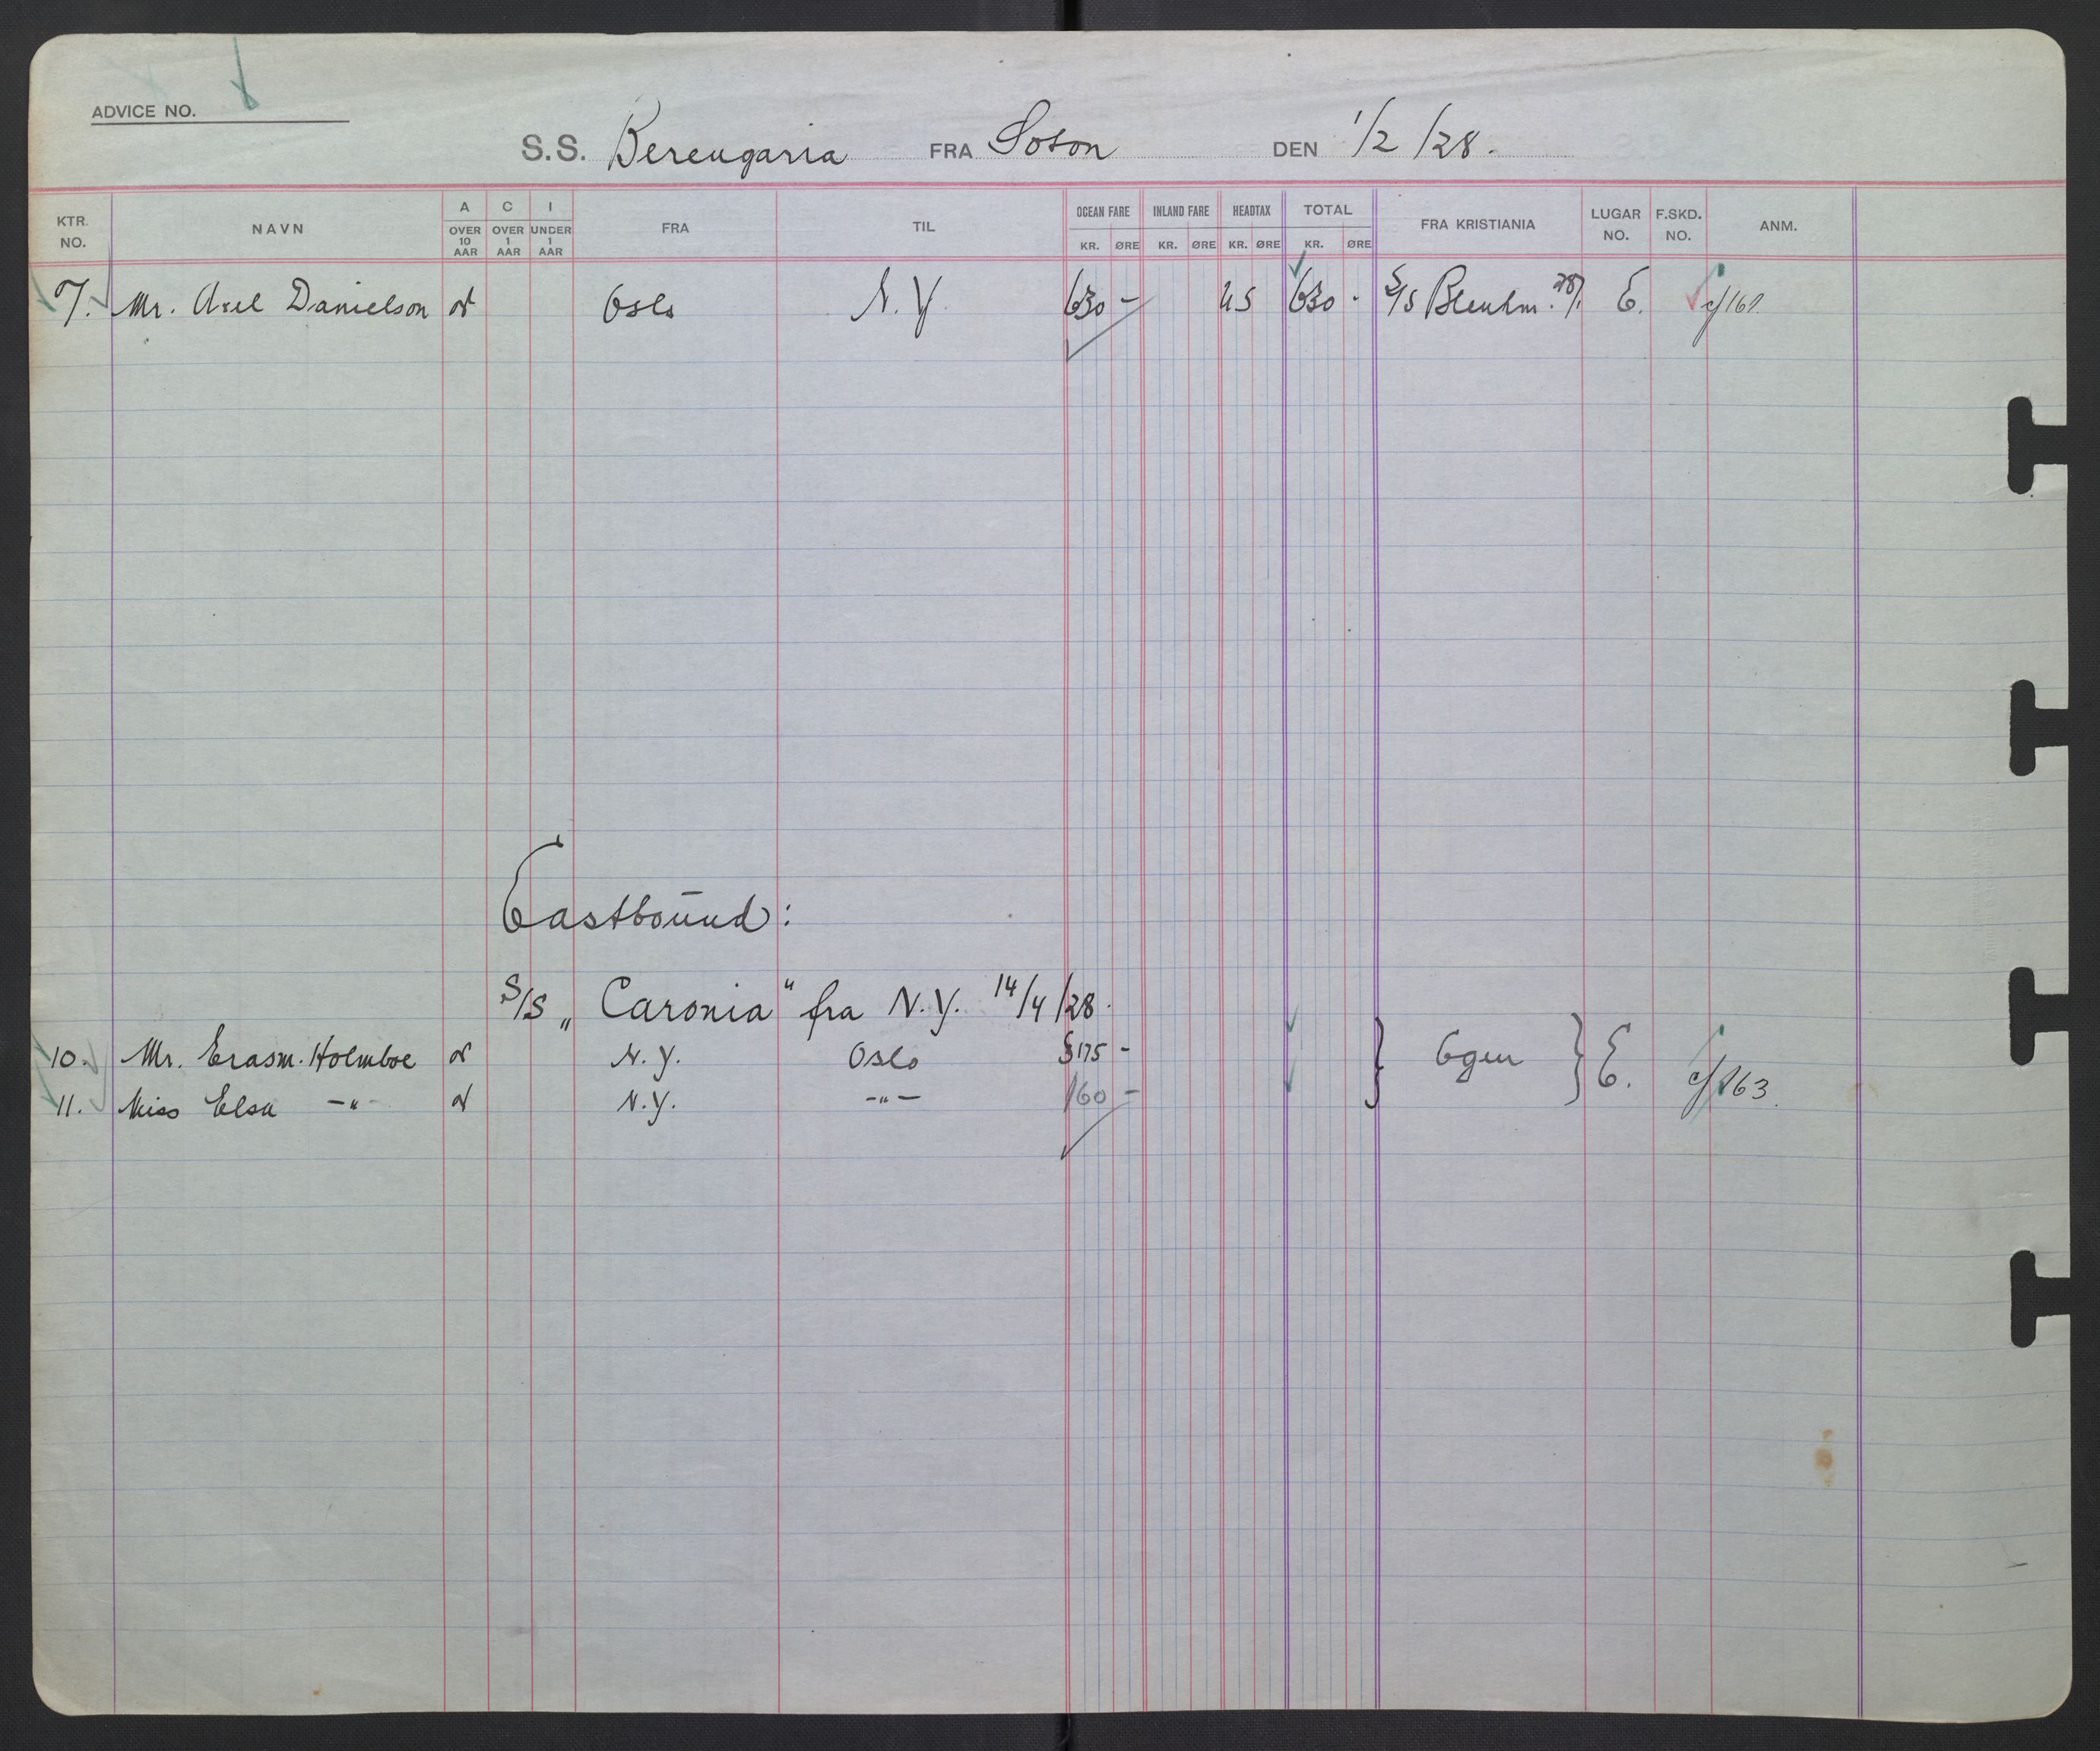 ADVICE NO.
S.S. Berengaria FRA Soton DEN 1/2/28.
KTR. NO. NAVN A OVER 10 AAR C OVER 1 AAR I UNDER 1 AAR FRA TIL OCEAN FARE KR. ØRE INLAND FARE KR. ØRE HEADTAX KR. ØRE TOTAL KR. ØRE FRA KRISTIANIA LUGAR NO. F.SKD. NO. ANM.
7. Mr. Axel Danielson Oslo N.Y. 630 - US 630 - S/S Blenhm. 28/1 E.
Eastbound:
S/S „Caronia" fra N.Y. 14/4/28.
10. Mr. Erasm. Holmboe N.Y. Oslo $175 - Egen E.
11. Miss Elsa -"- N.Y. -"- 160 - c/163